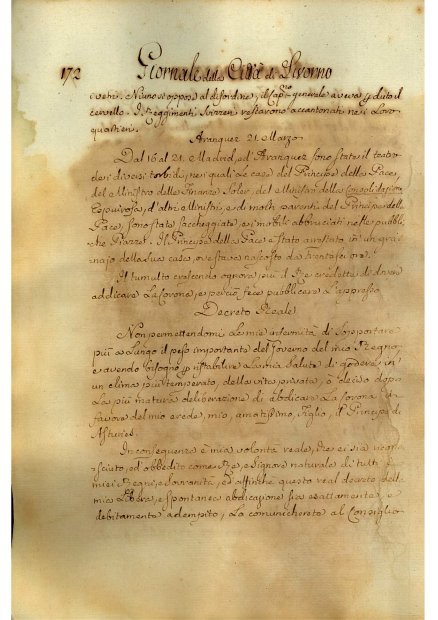 172 Giornale della Città di Livorno
vetri. Niuno si oppose al disordine, il Cap.no generale aveva perduto il
cervello. I Reggimenti Svizzeri restarono accantonati nei loro
quartieri.
Aranquez 21. Marzo
Dal 16 al 21. Madrid, ed Aranquez sono stati il teatro
dei diversi torbidi, nei quali le case del Principe della Pace,
del Ministro delle Finanze Soler, del Ministro della Consolidazione
Espinosa, d'altri Ministri, e di molti parenti del Principe della
Pace, sono state saccheggiate, e i mobili abbruciati nelle pubbli-
che Piazze. Il Principe della Pace è stato arrestato in un gra-
najo della sua casa, ove stava nascosto da trentasei ore.
Il tumulto crescendo ognora più il Re credette di dovere
addicare la Corona, e perciò fece pubblicare l'appresso
Decreto Reale
Non permettendomi le mie infermità di sopportare
più a lungo il peso importante del Governo del mio Regno,
e avendo bisogno per ristabilire la mia salute di godere in
un clima più temperato, della vita privata, ò deciso dopo
la più matura deliberazione di abdicare la Corona in
favore del mio erede, mio, amatissimo Figlio, il Principe di
Asturies.
In conseguenza è mia volontà reale, che ei sia ricono-
sciuto, ed obbedito come Re, e Signore naturale di tutti i
miei Regni, e sovranità, ed affinchè questo real decreto della
mia libera, e spontanea abdicazione sia esattamente, e
debitamente adempito, la comunicherete al Consiglio